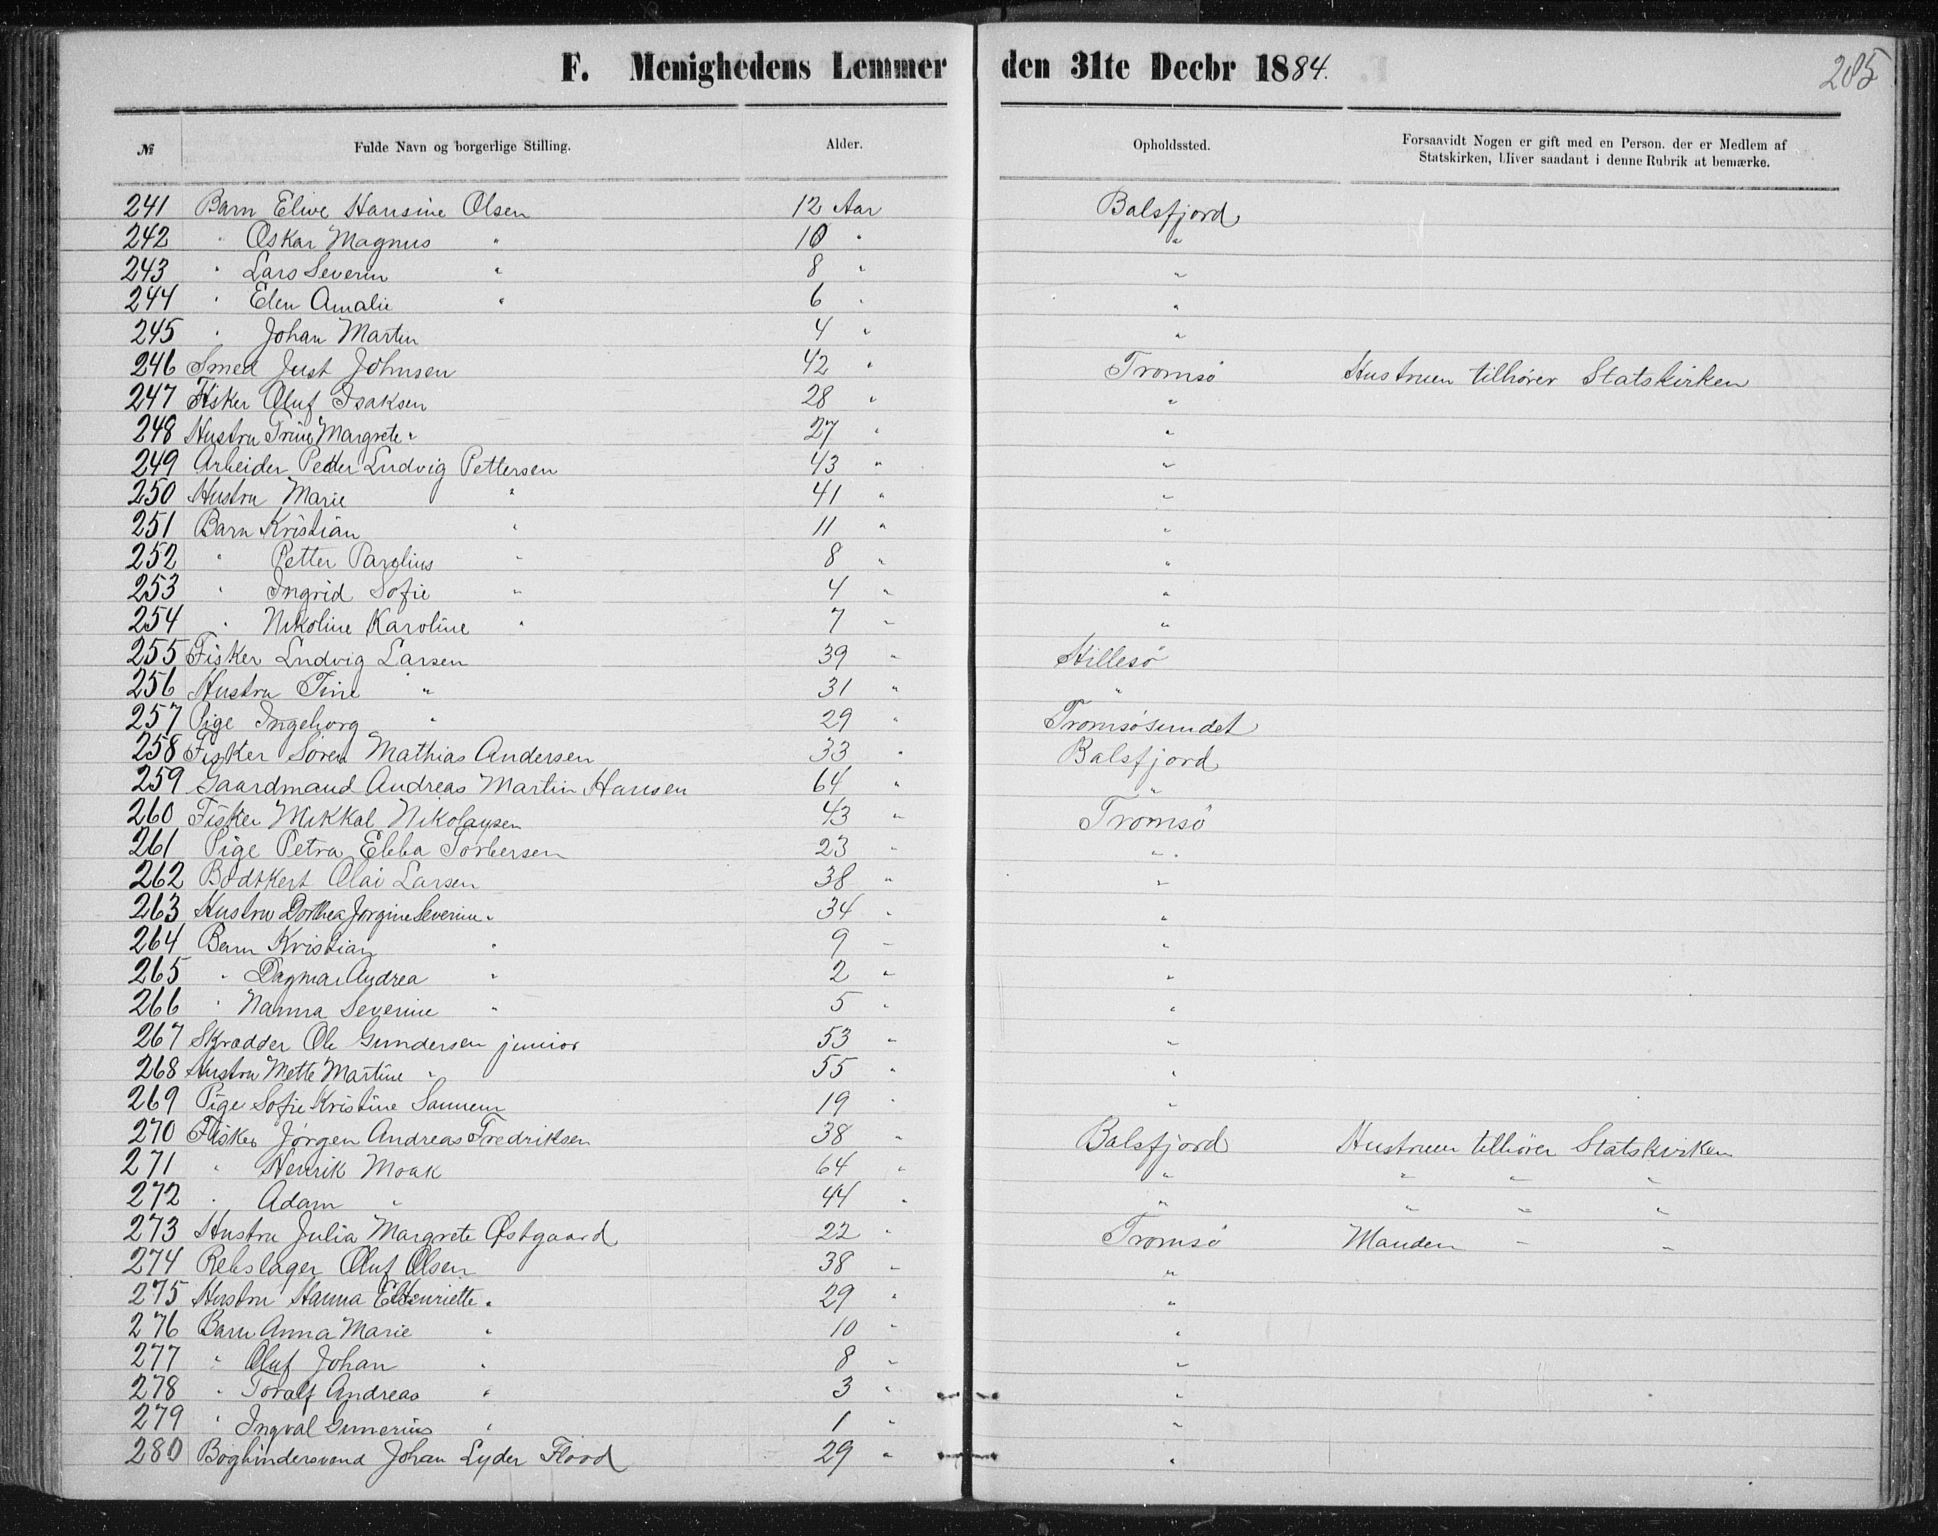 F. Menighedens Lemmer den 31te Decbr 1884. 205
№ Fulde Navn og borgerlige Stilling. Alder. Opholdssted. Forsaavidt Nogen er gift med en Person, der er Medlem af
Statskirken, bliver saadant i denne Rubrik at bemærke.
241 Barn Elive Hansine Olsen 12 Aar Balsfjord
242 " Oskar Magnus " 10 " "
243 " Lars Severin " 8 " "
244 " Elen Amalie " 6 " "
245 " Johan Martin 4 " "
246 Smed Just Johnsen 42 " Tromsø Hustruen tilhører Statskirken
247 Fisker Oluf Isaksen 28 " "
248 Hustru Trine Margrete " 27 " "
249 Arbeider Petter Ludvig Pettersen 43 " "
250 Hustru Marie " 41 " "
251 Barn Kristian " 11 " "
252 " Petter Parelius " 8 " "
253 " Ingrid Sofie " 4 " "
254 " Nikoline Karoline " 7 " "
255 Fisker Ludvig Larsen 39 " Hillesø
256 Hustru Tine " 31 " "
257 Pige Ingeborg " 29 " Tromsøsundet
258 Fisker Søren Mathias Andersen 33 " Balsfjord
259 Gaardmand Andreas Martin Hansen 64 " "
260 Fisker Mikkal Nikolaysen 43 " Tromsø
261 Pige Petra Ebba Torbersen 23 " "
262 Bødtkert Olai Larsen 38 " "
263 Hustru Dorthea Jørgine Severine " 34 " "
264 Barn Kristian " 9 " "
265 " Dagmar Andrea " 2 " "
266 " Nanna Severine " 5 " "
267 Skrædder Ole Gundersen junior 53 " "
268 Hustru Mette Martine " 55 " "
269 Pige Sofie Kristine Sannem 19 " "
270 Fisker Jørgen Andreas Fredriksen 38 " Balsfjord Hustruen tilhører Statskirken
271 " Henrik Moak 64 " " " " "
272 " Adam " 44 " " " " "
273 Hustru Julia Margrete Østgaard 22 " Tromsø Manden " "
274 Rebslager Oluf Olsen 38 " "
275 Hustru Hanna Henriette " 29 " "
276 Barn Anna Marie " 10 " "
277 " Oluf Johan " 8 " "
278 " Toralf Andreas " 3 " "
279 " Ingval Gunerius " 1 " "
280 Bogbindersvend Johan Lyder Flood 29 " "